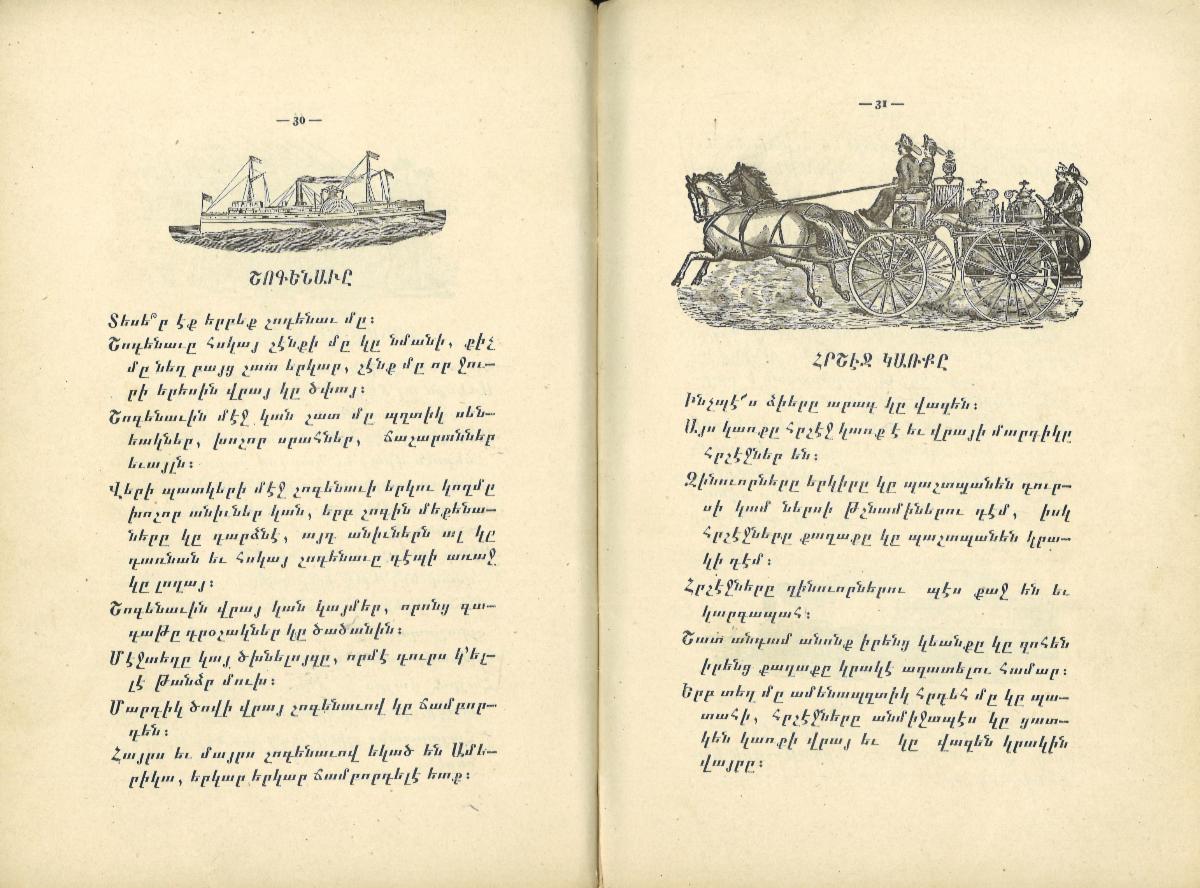 — 30 —
ՇՈԳԵՆԱՒԸ
Տեսե՞ր էք երբեք շոգենաւ մը։
Շոգենաւը հսկայ շէնքի մը կը նմանի, քիչ
մը նեղ բայց շատ երկար, շէնք մը որ ջու—
րի երեսին վրայ կը ծփայ։
Շոգենաւին մէջ կան շատ մը պզտիկ սեն—
եակներ, խոշոր սրահներ, ճաշարաններ
եւայլն։
Վերի պատկերի մէջ շոգենաւի երկու կողմը
խոշոր անիւներ կան, երբ շոգին մեքենա—
ները կը դարձնէ, այդ անիւներն ալ կը
դառնան եւ հսկայ շոգենաւը դէպի առաջ
կը լողայ։
Շոգենաւին վրայ կան կայմեր, որոնց գա—
գաթը դրօշակներ կը ծածանին։
Մէջտեղը կայ ծխնելոյզը, որմէ դուրս կ'ել—
լէ թանձր մուխ։
Մարդիկ ծովի վրայ շոգենաւով կը ճամբոր—
դեն։
Հայրս եւ մայրս շոգենաւով եկած են Ամե—
րիկա, երկար երկար ճամբորդելէ ետք։
— 31 —
ՀՐՇԷՋ ԿԱՌՔԸ
Ինչպէ՛ս ձիերը արագ կը վազեն։
Այս կառքը հրշէջ կառք է եւ վրայի մարդիկը
հրշէջներ են։
Զինուորները երկիրը կը պաշտպանեն դուր—
սի կամ ներսի թշնամիներու դէմ, իսկ
հրշէջները քաղաքը կը պաշտպանեն կրա—
կի դէմ։
Հրշէջները զինուորներու պէս քաջ են եւ
կարգապահ։
Շատ անգամ անոնք իրենց կեանքը կը զոհեն
իրենց քաղաքը կրակէ ազատելու համար։
Երբ տեղ մը ամենապզտիկ հրդեհ մը կը պա—
տահի, հրշէջները անմիջապէս կը ցատ—
կեն կառքի վրայ եւ կը վազեն կրակին
վայրը։